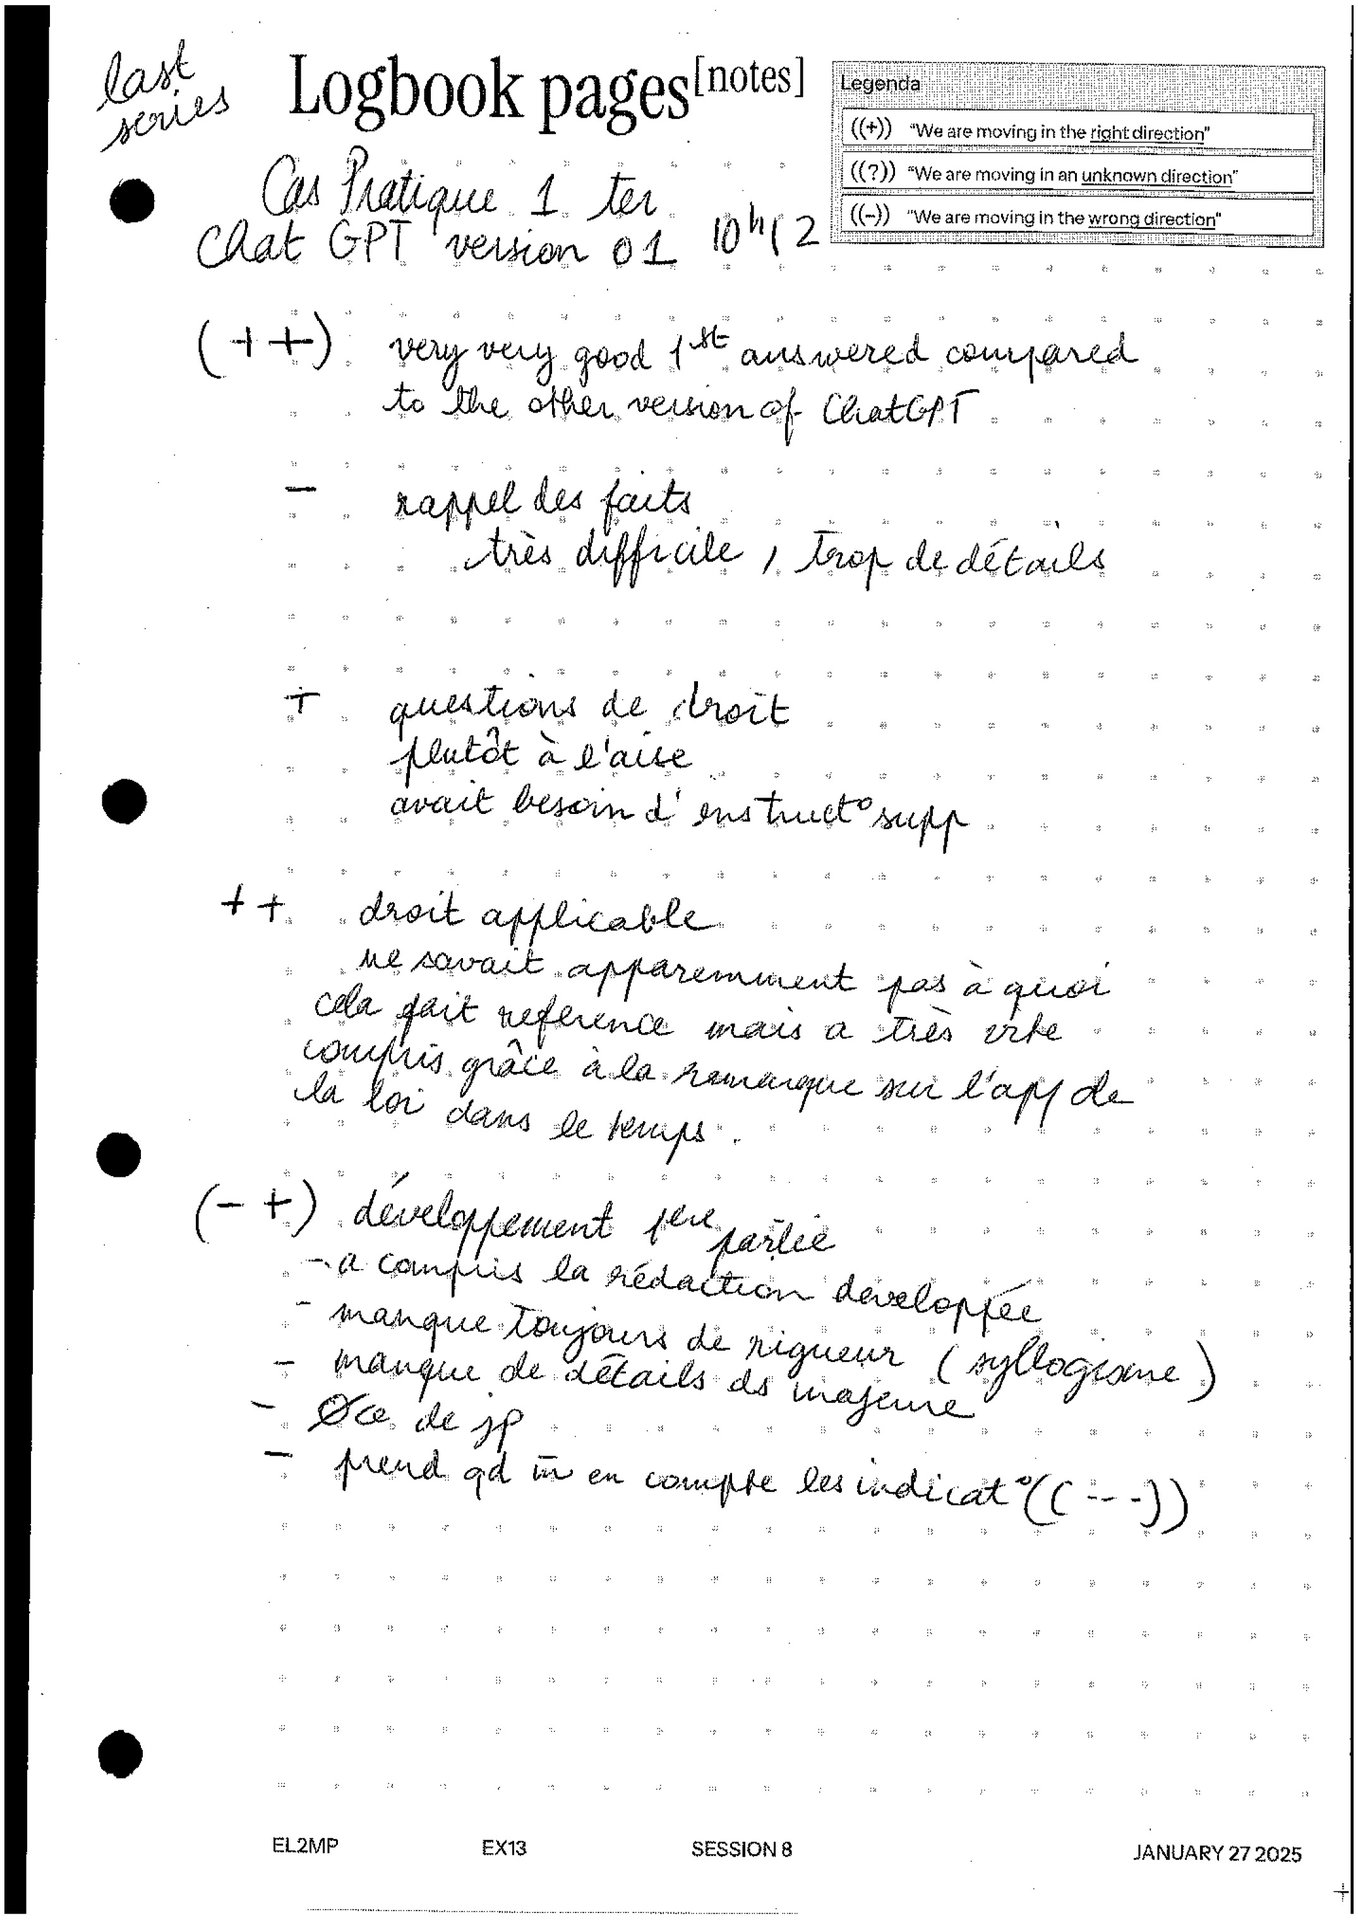 last
series
Logbook pages[notes]
Legenda
((+)) "We are moving in the right direction"
((?)) "We are moving in an unknown direction"
((-)) "We are moving in the wrong direction"
Cas Pratique 1 ter
Chat GPT version 01 10h12
(++) very very good 1st answered compared
to the other version of ChatGPT
— rappel des faits
très difficile, trop de détails
+ questions de droit
plutôt à l'aise
avait besoin d'instructo supp
++ droit applicable
ne savait apparemment pas à quoi
cela fait reference mais a très vite
compris grâce à la remarque sur l'app de
la loi dans le temps.
(-+) développement 1ere partie
- a compris la rédaction developpée
- manque toujours de rigueur (syllogisme)
- manque de détails ds majeure
- Øce de jp
- prend qd m̄ en compte les indicato ((---))
EL2MP EX13 SESSION 8 JANUARY 27 2025